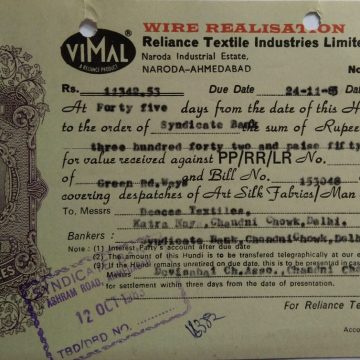 WIRE REALISATION
VIMAL
A RELIANCE PRODUCT
Reliance Textile Industries Limite
Naroda Industrial Estate,
NARODA-AHMEDABAD No
Rs. 11342.53 Due Date 24-11-83 Dat
At Forty five days from the date of this H
to the order of Syndicate Bank the sum of Rupee
three hundred forty two and paise fifty
for value received against PP/RR/LR No.
of Green Rd. Ways and Bill No. 153048
covering despatches of Art Silk Fabrics/Man
To Messrs Textiles,
Katra Chandni Chowk, Delhi.
Bankers : Syndicate Bank, Chandni Chowk, Delhi
Note : (1) Interest Party's account after due date
(2) Amount of this Hundi is to be transferred telegraphically at our e
(3) If the Hundi remains unretired on due date, this is to be presented in cas
Messrs Ch. Asso., Chandni Ch
for settlement within three days from the date of presentation.
For Reliance Te
SYNDICA
ASHRAM ROAD
12 OCT 1983
TBD/DBD NO.
Acco
ES